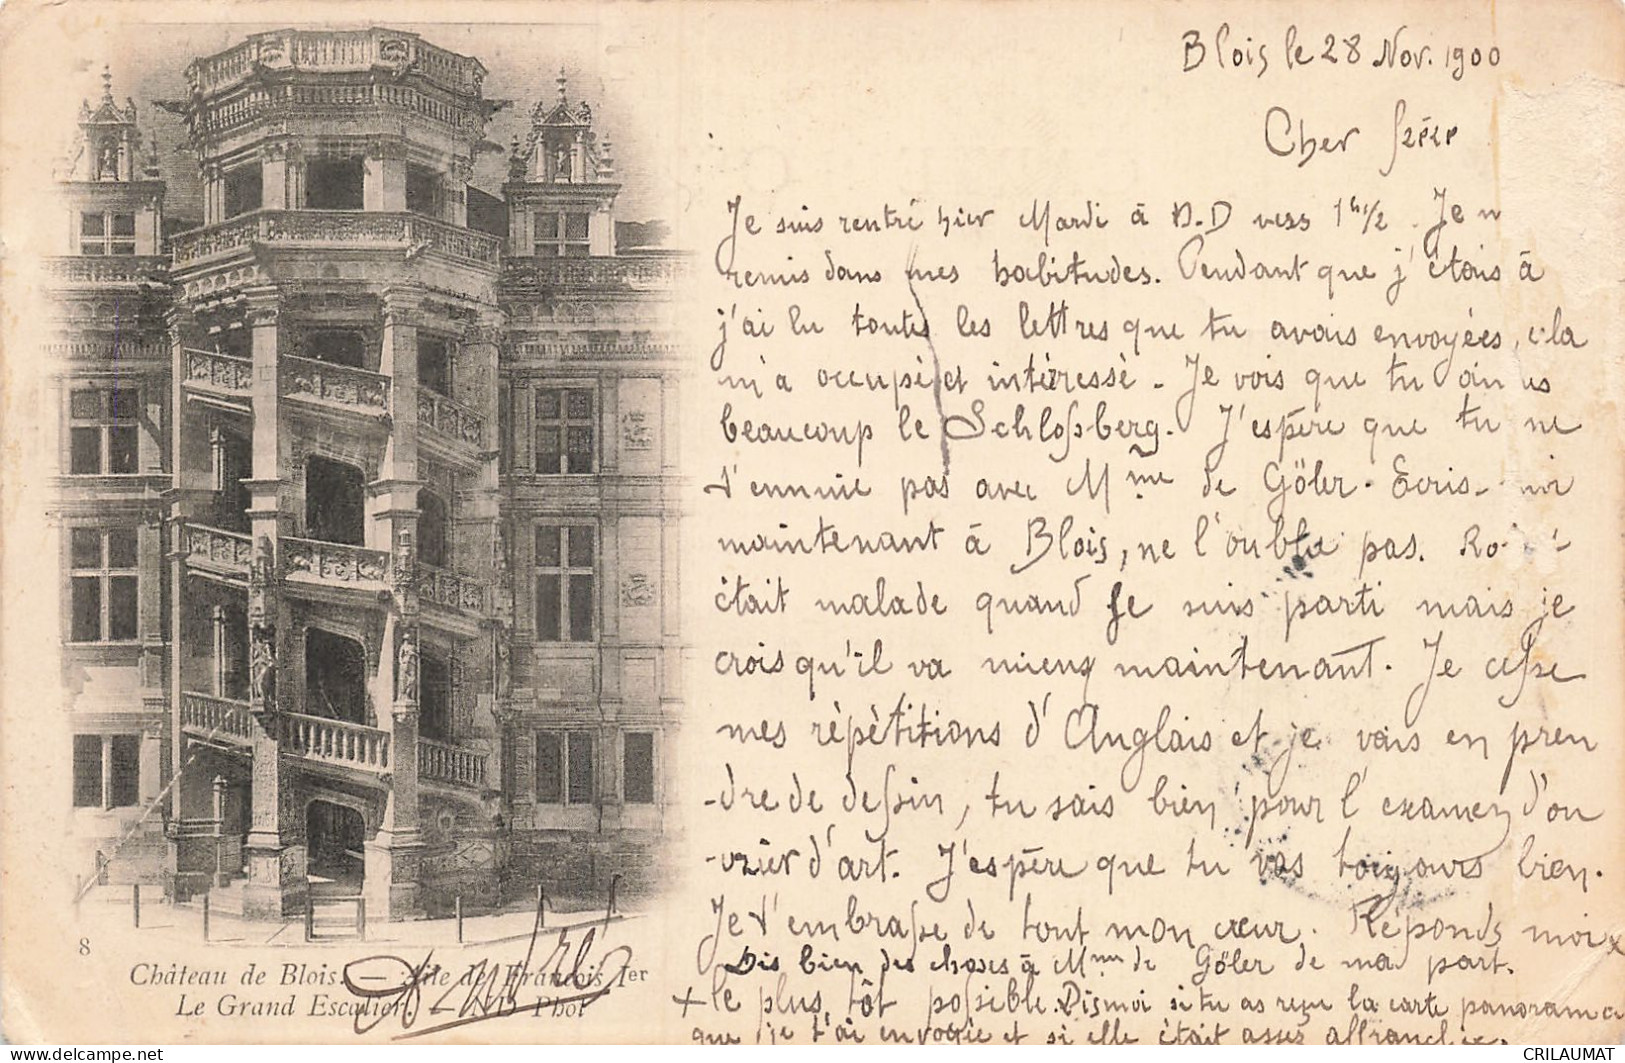 Blois le 28 Nov. 1900
Cher frère
Je suis rentré hier Mardi à N.D vers 1h 1/2. Je
remis dans mes habitudes. Pendant que j'étais à
j'ai lu toutes les lettres que tu avais envoyées, cela
m'a occupé et intéressé. Je vois que tu aimes
beaucoup le Schloßberg. J'espère que tu ne
t'ennuie pas avec Mme de Göler. Ecris-moi
maintenant à Blois, ne l'oublie pas.
était malade quand je suis parti mais je
crois qu'il va mieux maintenant. Je cesse
mes répétitions d'Anglais et je vais en pren
-dre de dessin, tu sais bien pour l'examen d'ou
-vrier d'art. J'espère que tu vas toujours bien.
Je t'embrasse de tout mon cœur. Réponds moi x
Dis bien des choses à Mme de Göler de ma part.
+ le plus tôt possible. Dis moi si tu as reçu la carte panorama
que je t'ai envoyée et si elle était assez affranchie.
8
Château de Blois. — Aile de François Ier
Le Grand Escalier. — ND Phot
CRILAUMAT